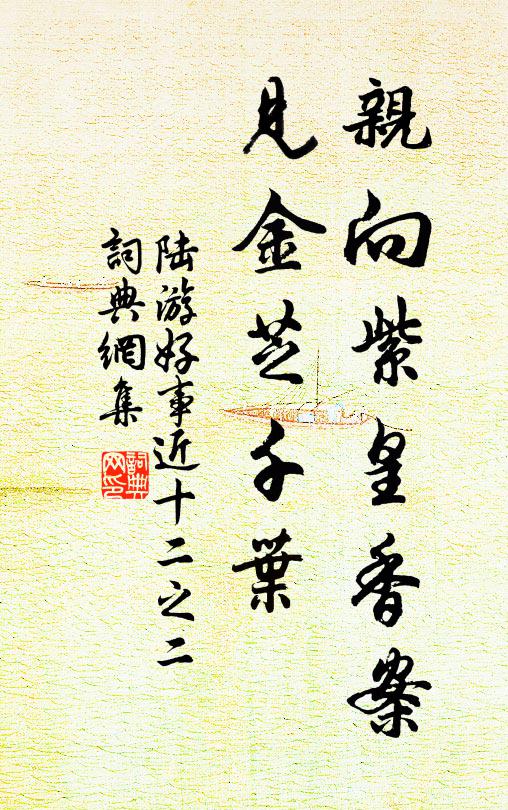 親向紫皇香案
見金芝千葉
陆游好事近十二之二
詞典網集
詞典
网印